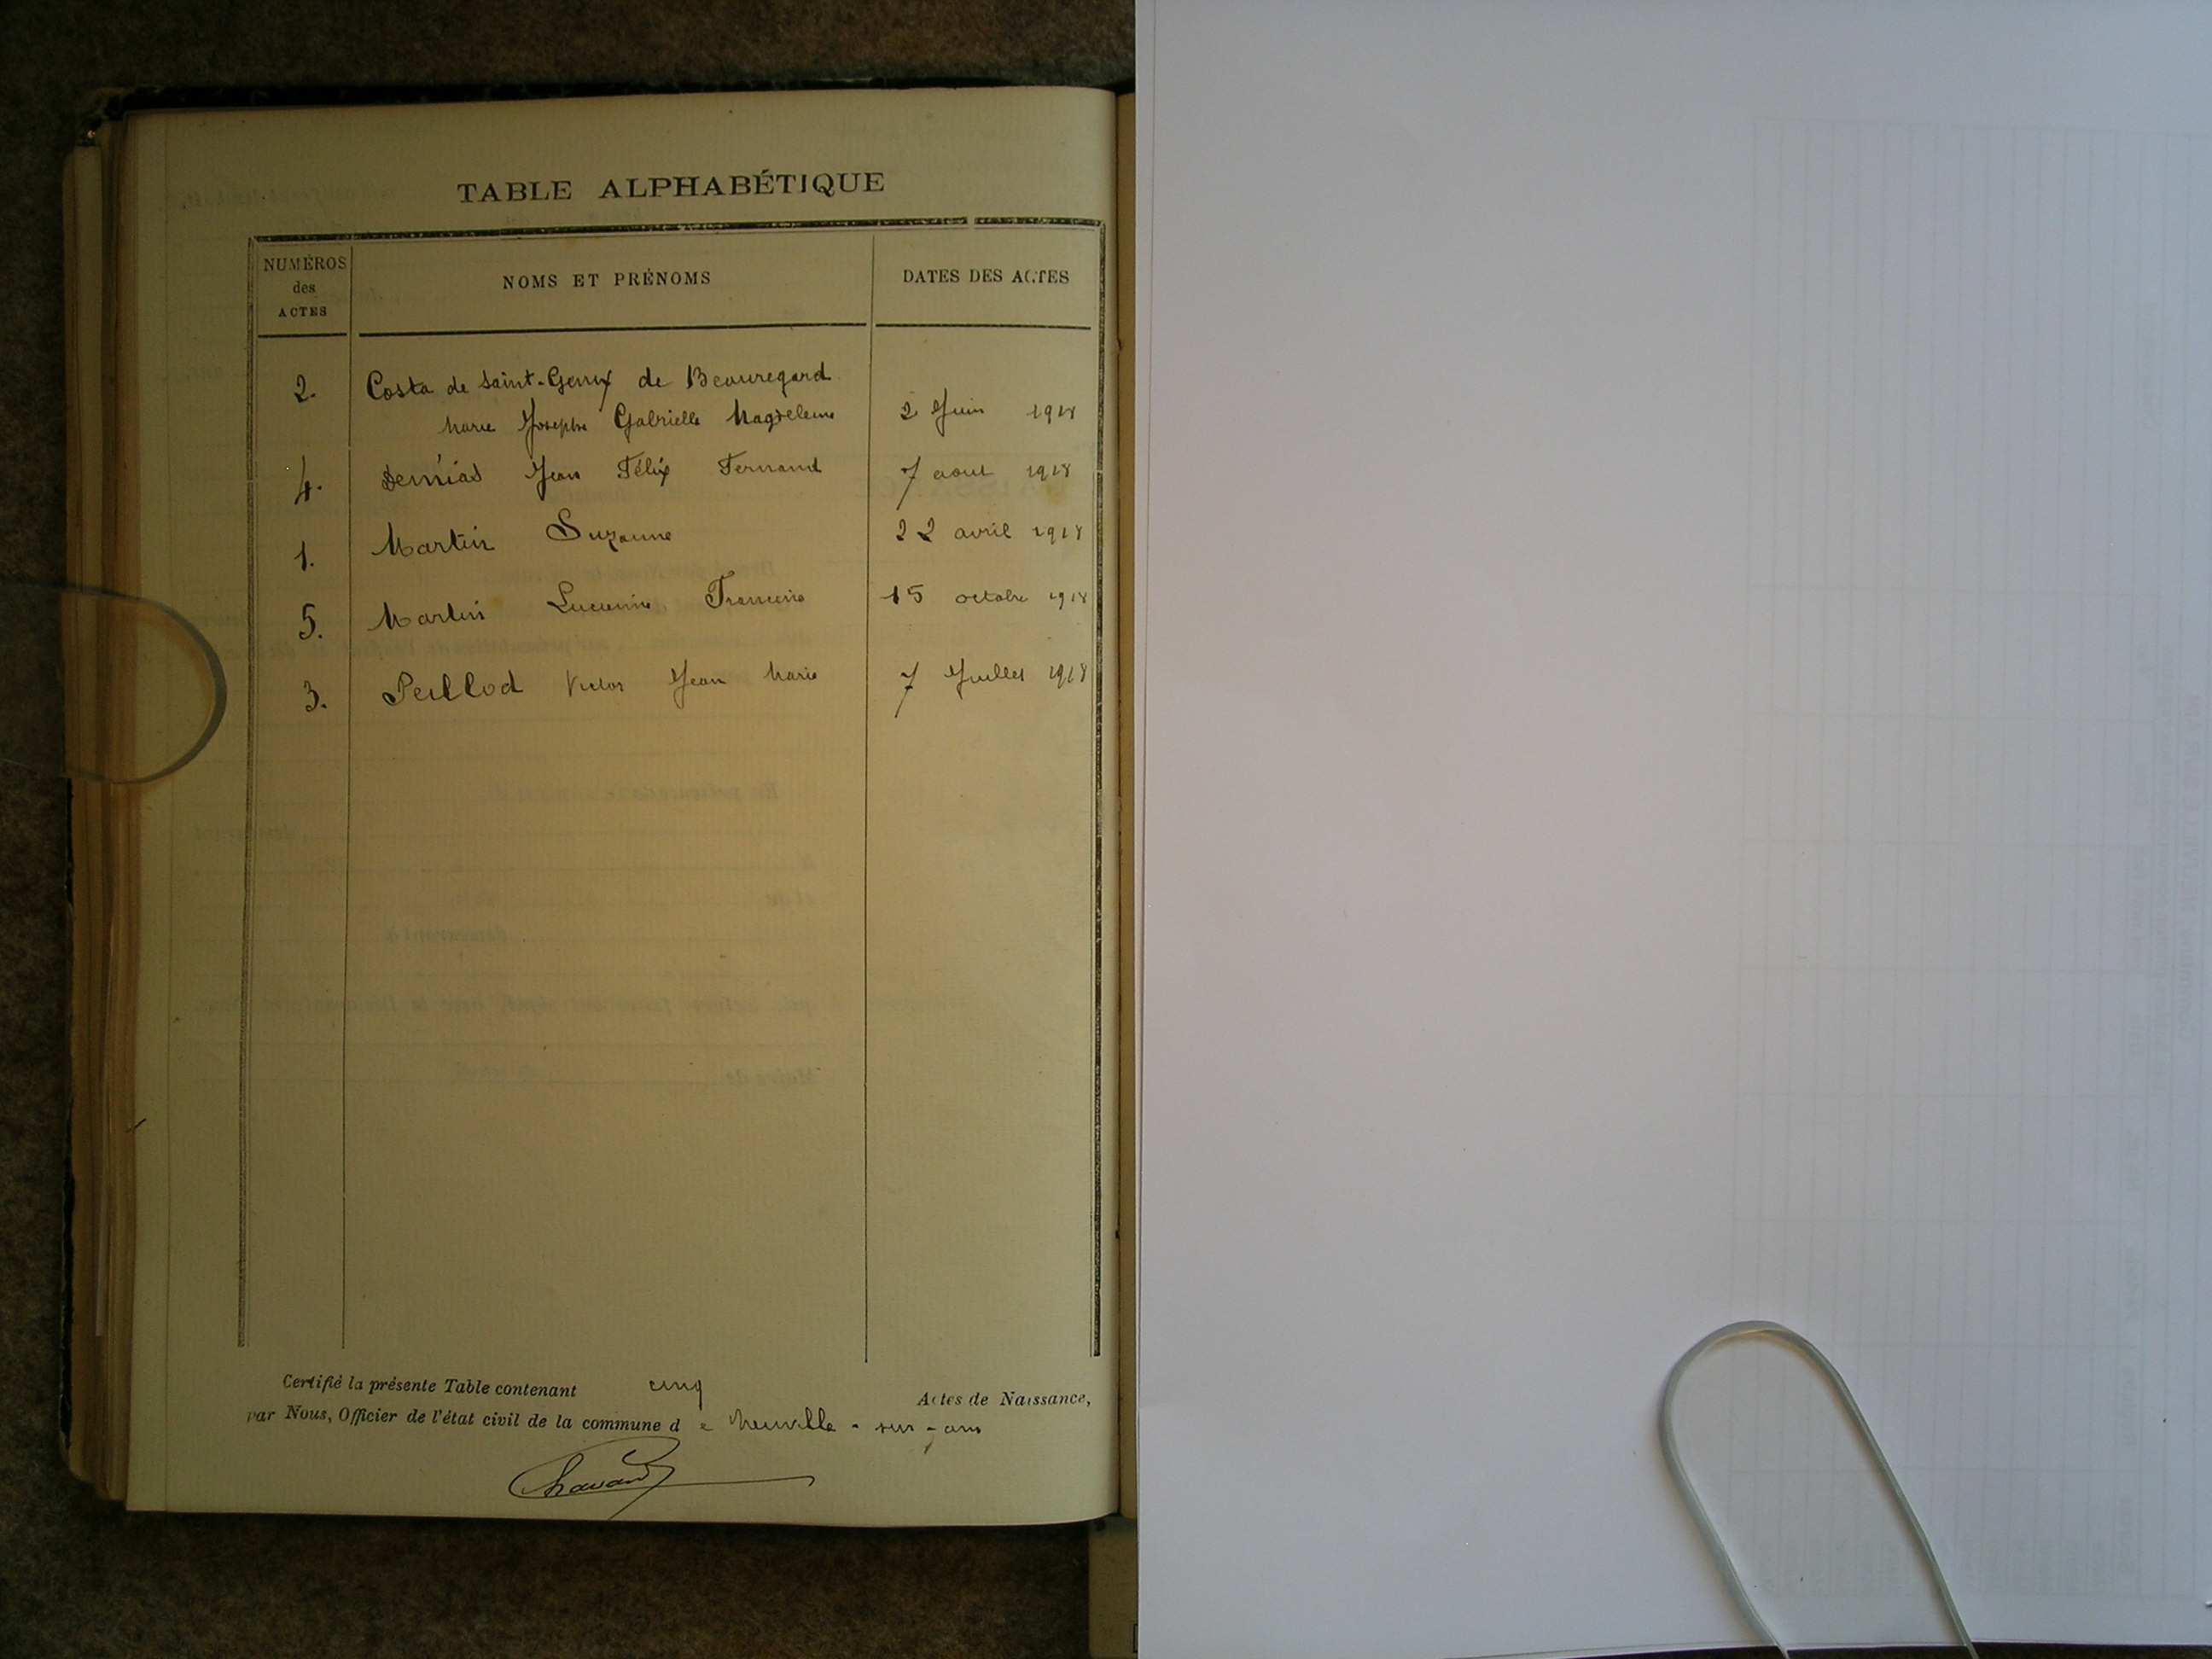 TABLE ALPHABÉTIQUE
NUMÉROS
des
ACTES
NOMS ET PRÉNOMS
DATES DES ACTES
2. Costa de Saint-Genix de Beauregard
Marie Josephe Gabrielle Magdeleine 2 Juin 1918
4. Demias Jean Félix Fernand 7 aout 1918
1. Martin Suzanne 22 avril 1918
5. Martin Lucienne Francine 15 octobre 1918
3. Peillod Victor Jean Marie 7 Juillet 1918
Certifié la présente Table contenant cinq Actes de Naissance,
par Nous, Officier de l'état civil de la commune d e Neuville-sur-ain